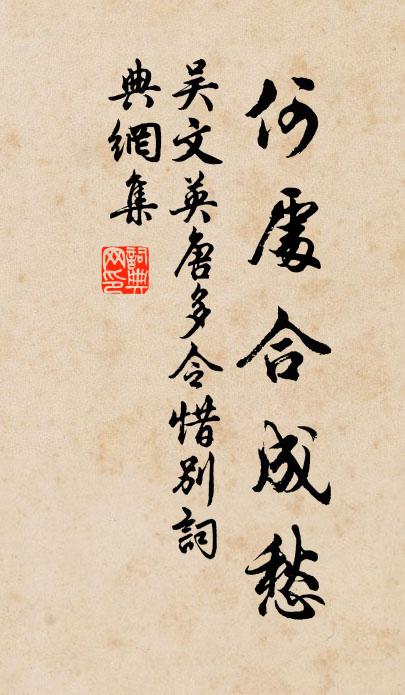 何處合成愁
吳文英唐多令惜別詞
典網集
詞典
網印